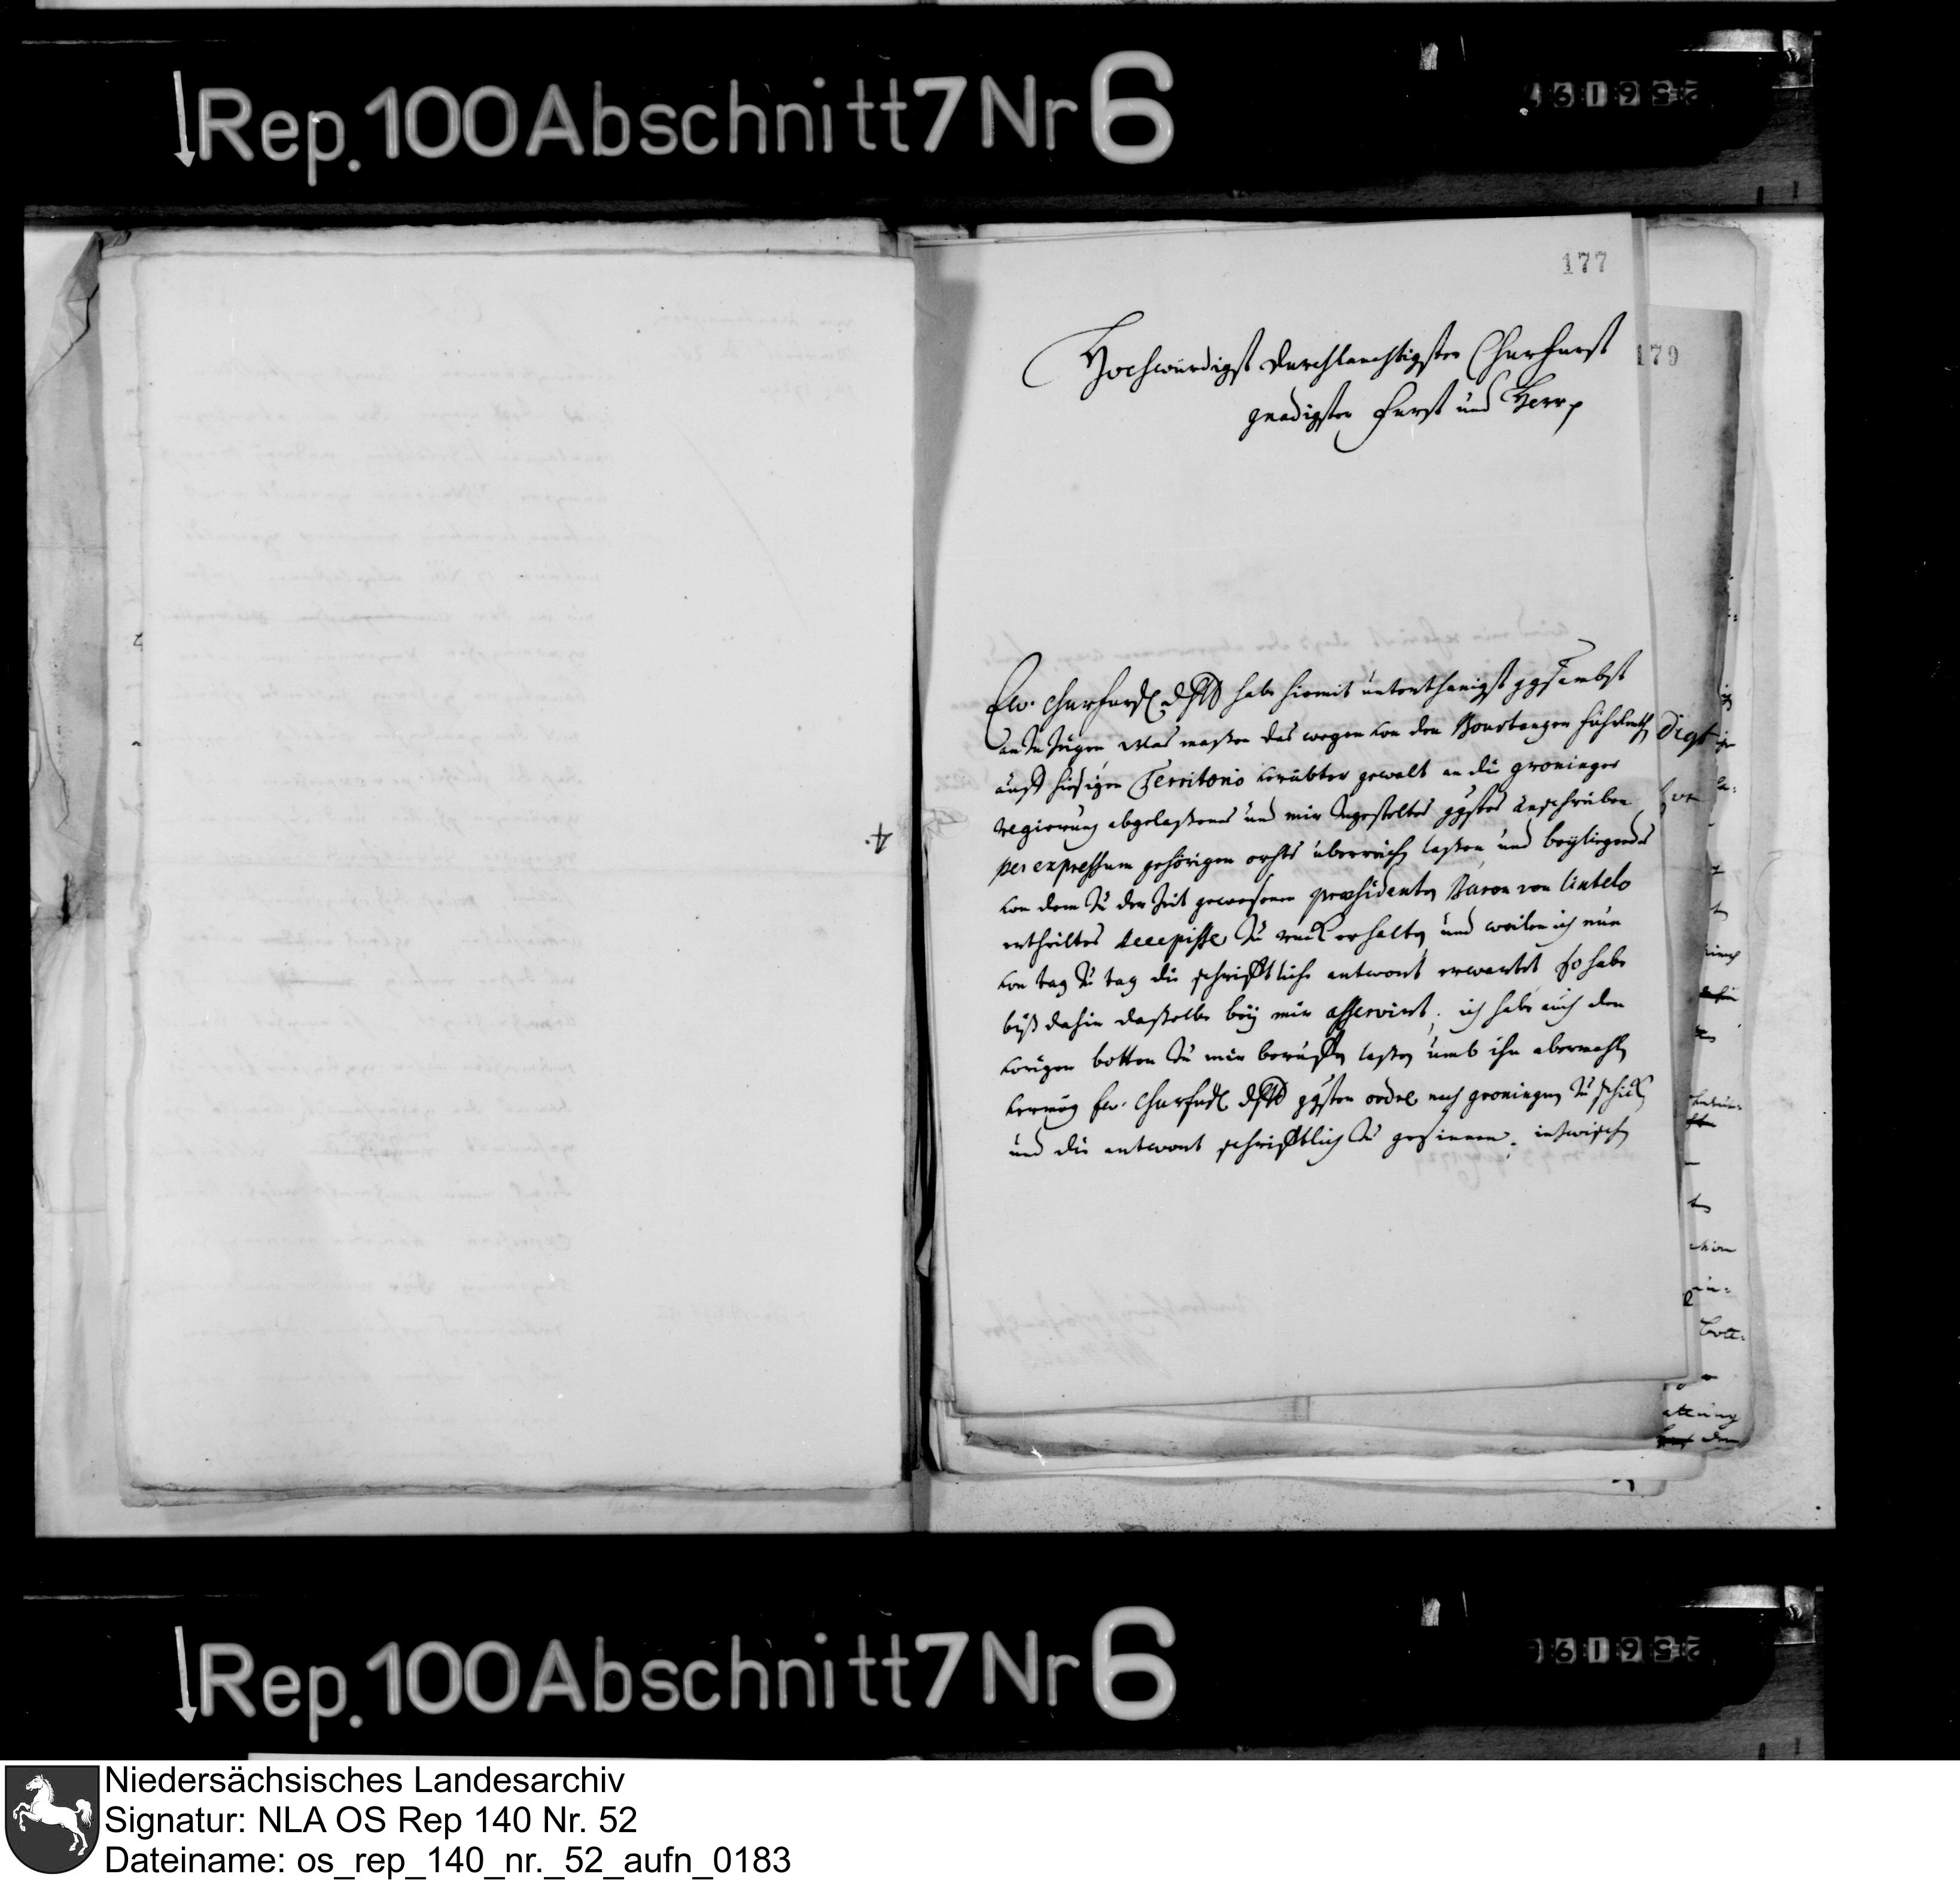 Rep. 100 Abschnitt 7 Nr 6
177
Hochwürdigst Durchlauchtigster Churfurst
gnadigster Furst und Herr
179
Ew. Churfurstl. Dhlt habe hiemit unterthanigst
an zu fügen was maßen das wegen von den Bourtangern
auff hiesigen Territorio verübter gewalt an die groninger
regierung abgelaßenes und mir zugesteltes ggstes anschreiben
per expressum gehörigen orths überreichen laßen und beyliegendes
von dem zu der zeit gewesenen præsidenten Baron von Lintelo
ertheiltes recepisse zu ruck erhalten und weilen ich nun
von tag zu tag die schrifftliche antwort erwartet so habe
biß dahin daßelbe bey mir asservirt, ich habe auch den
vorigen botten zu mir beruffen laßen umb ihn abermahl
vermög Ew. Churfurstl. Dhlt ggsten ordre nach groningen zu schicken
und die antwort schrifftlich zu gesinnen. inzwischen
4.
Rep. 100 Abschnitt 7 Nr 6
Niedersächsisches Landesarchiv
Signatur: NLA OS Rep 140 Nr. 52
Dateiname: os_rep_140_nr._52_aufn_0183